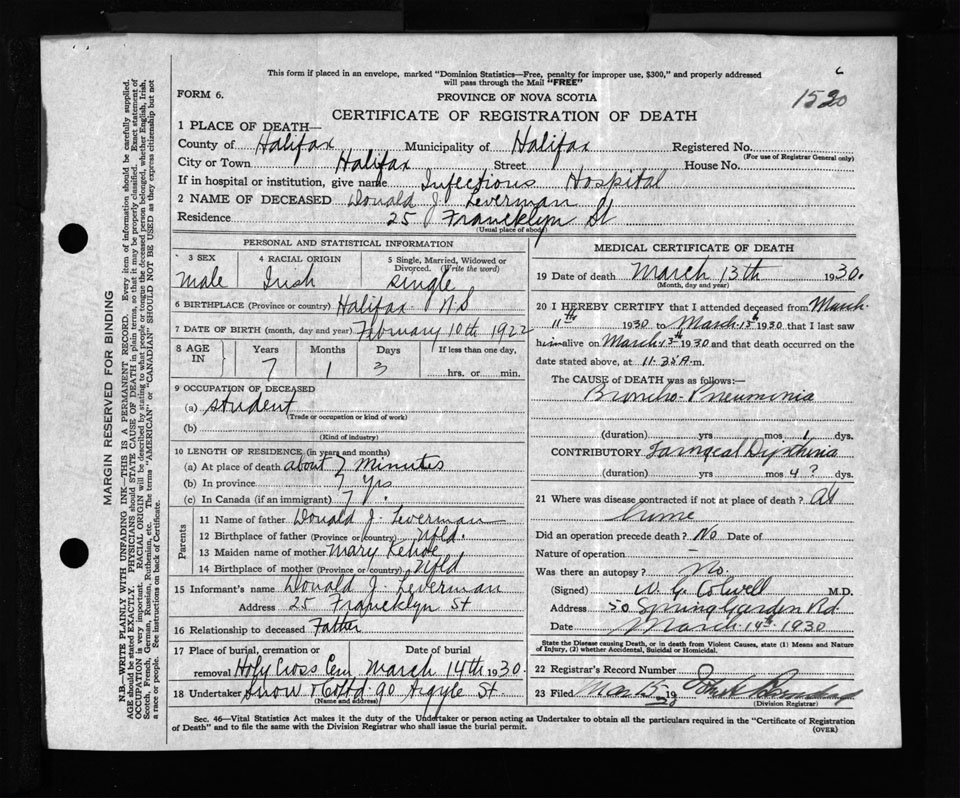 This form if placed in an envelope, marked "Dominion Statistics—Free, penalty for improper use, $300," and properly addressed
will pass through the Mail "FREE"
6
FORM 6.
PROVINCE OF NOVA SCOTIA
1520
CERTIFICATE OF REGISTRATION OF DEATH
1 PLACE OF DEATH—
County of Halifax Municipality of Halifax Registered No.
(For use of Registrar General only)
City or Town Halifax Street House No.
If in hospital or institution, give name Infectious Hospital
2 NAME OF DECEASED Donald J. Leverman
Residence 25 Francklyn St
(Usual place of abode)
PERSONAL AND STATISTICAL INFORMATION
3 SEX 4 RACIAL ORIGIN 5 Single, Married, Widowed or Divorced. (Write the word)
Male Irish Single
6 BIRTHPLACE (Province or country) Halifax N.S
7 DATE OF BIRTH (month, day and year) February 10th 1922
8 AGE IN Years Months Days If less than one day,
7 1 3 hrs. or min.
9 OCCUPATION OF DECEASED
(a) student
(Trade or occupation or kind of work)
(b)
(Kind of industry)
10 LENGTH OF RESIDENCE (in yrs., mos. and dys.)
(a) At place of death about 7 minutes
(b) In province 7 yrs
(c) In Canada (if an immigrant) 7
Parents
11 Name of father Donald J. Leverman
12 Birthplace of father (Province or country) Nfld.
13 Maiden name of mother Mary Kehoe
14 Birthplace of mother (Province or country) Nfld
15 Informant's name Donald J. Leverman
Address 25 Francklyn St
16 Relationship to deceased Father
17 Place of burial, cremation or Date of burial
removal Holy Cross Cem March 14th 1930.
18 Undertaker Snow & Co Ltd 90 Argyle St.
(Name and address)
MEDICAL CERTIFICATE OF DEATH
19 Date of death March 13th 1930.
(Month, day and year)
20 I HEREBY CERTIFY that I attended deceased from March
11th 1930 to March 13th 1930 that I last saw
him alive on March 13th 1930 and that death occurred on the
date stated above, at 11.35 A.m.
The CAUSE of DEATH was as follows:—
Broncho-Pneumonia
(duration) yrs mos 1 dys.
CONTRIBUTORY
(duration) yrs mos 4 ? dys.
21 Where was disease contracted if not at place of death? At
home
Did an operation precede death? No Date of
Nature of operation —
Was there an autopsy? No.
(Signed) W. G. Colwell M.D.
Address 50 Spring Garden Rd
Date March 14th 1930
State the Disease causing Death, or in death from Violent Causes, state (1) Means and Nature
of Injury, (2) whether Accidental, Suicidal or Homicidal.
22 Registrar's Record Number
23 Filed Mar 15 1930
(Division Registrar)
Sec. 46—Vital Statistics Act makes it the duty of the Undertaker or person acting as Undertaker to obtain all the particulars required in the "Certificate of Registration
of Death" and to file the same with the Division Registrar who shall issue the burial permit.
(OVER)
MARGIN RESERVED FOR BINDING
N.B.—WRITE PLAINLY WITH UNFADING INK—THIS IS A PERMANENT RECORD. Every item of information should be carefully supplied.
AGE should be stated EXACTLY. PHYSICIANS should STATE CAUSE OF DEATH in plain terms, so that it may be properly classified. Exact statement of
OCCUPATION is very important. RACIAL ORIGIN will be described by stating to what people or tongue the deceased person belonged, whether English, Irish,
Scotch, French, German, Russian, Ruthenian, etc. The terms "AMERICAN" or "CANADIAN" SHOULD NOT BE USED as they express citizenship but not
a race or people. See instructions on back of Certificate.